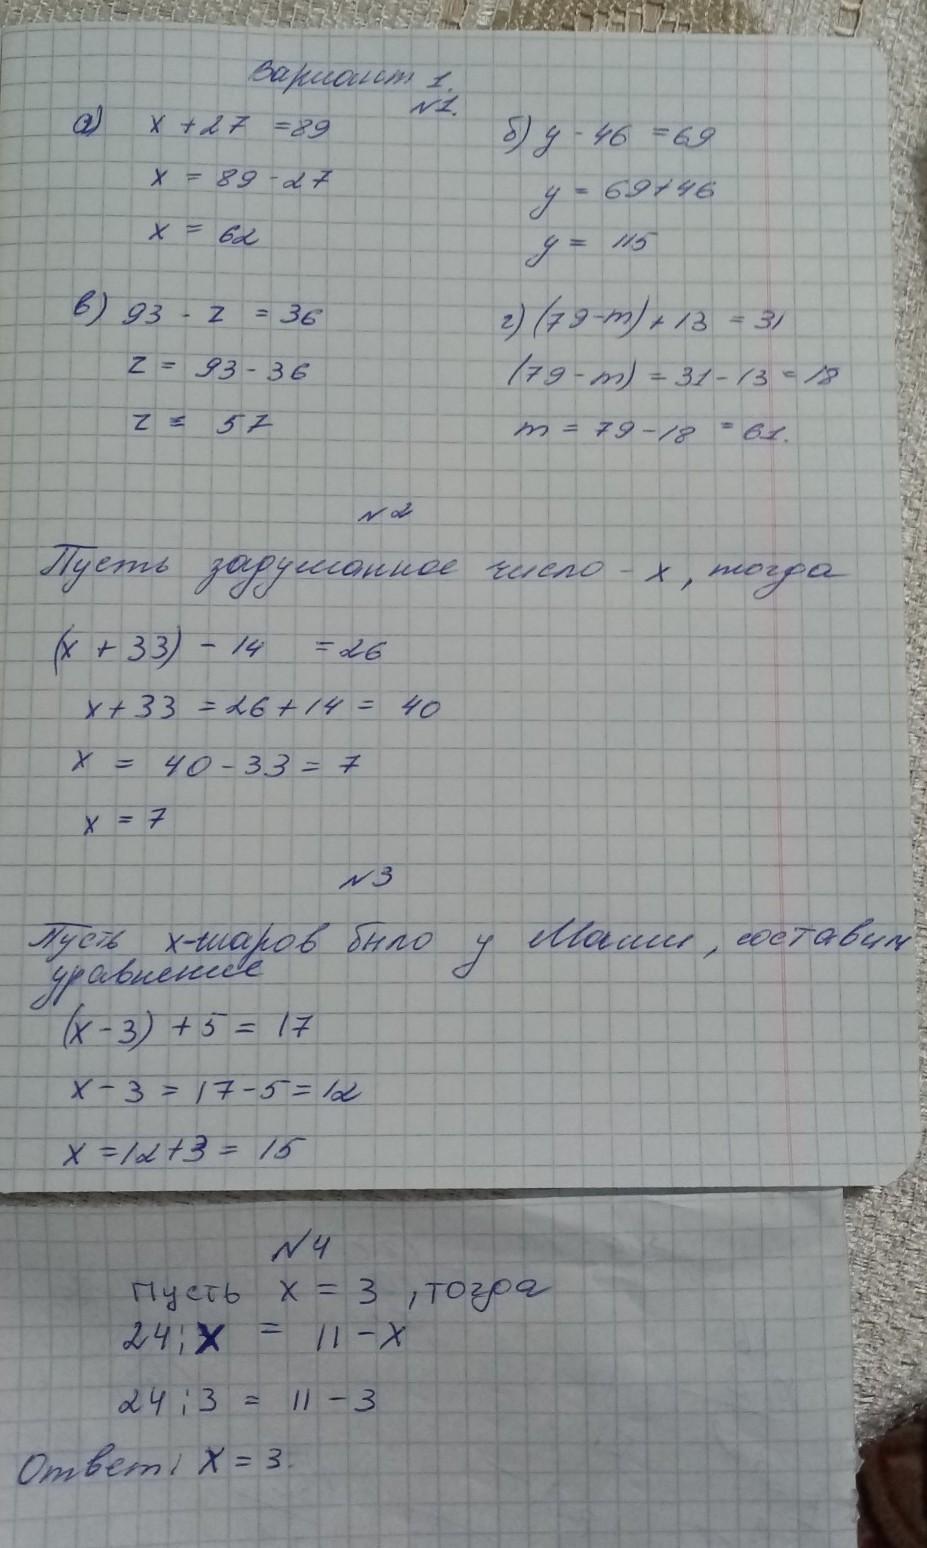 Вариант 1.
№1.
а) x + 27 = 89
x = 89 - 27
x = 62
б) y - 46 = 69
y = 69 + 46
y = 115
в) 93 - z = 36
z = 93 - 36
z = 57
г) (79 - m) + 13 = 31
(79 - m) = 31 - 13 = 18
m = 79 - 18 = 61.
№2
Пусть задуманное число - x, тогда
(x + 33) - 14 = 26
x + 33 = 26 + 14 = 40
x = 40 - 33 = 7
x = 7
№3
Пусть x-шаров было у Маши, составим
уравнение
(x - 3) + 5 = 17
x - 3 = 17 - 5 = 12
x = 12 + 3 = 15
№4
Пусть x = 3, тогда
24 : x = 11 - x
24 : 3 = 11 - 3
Ответ: x = 3.